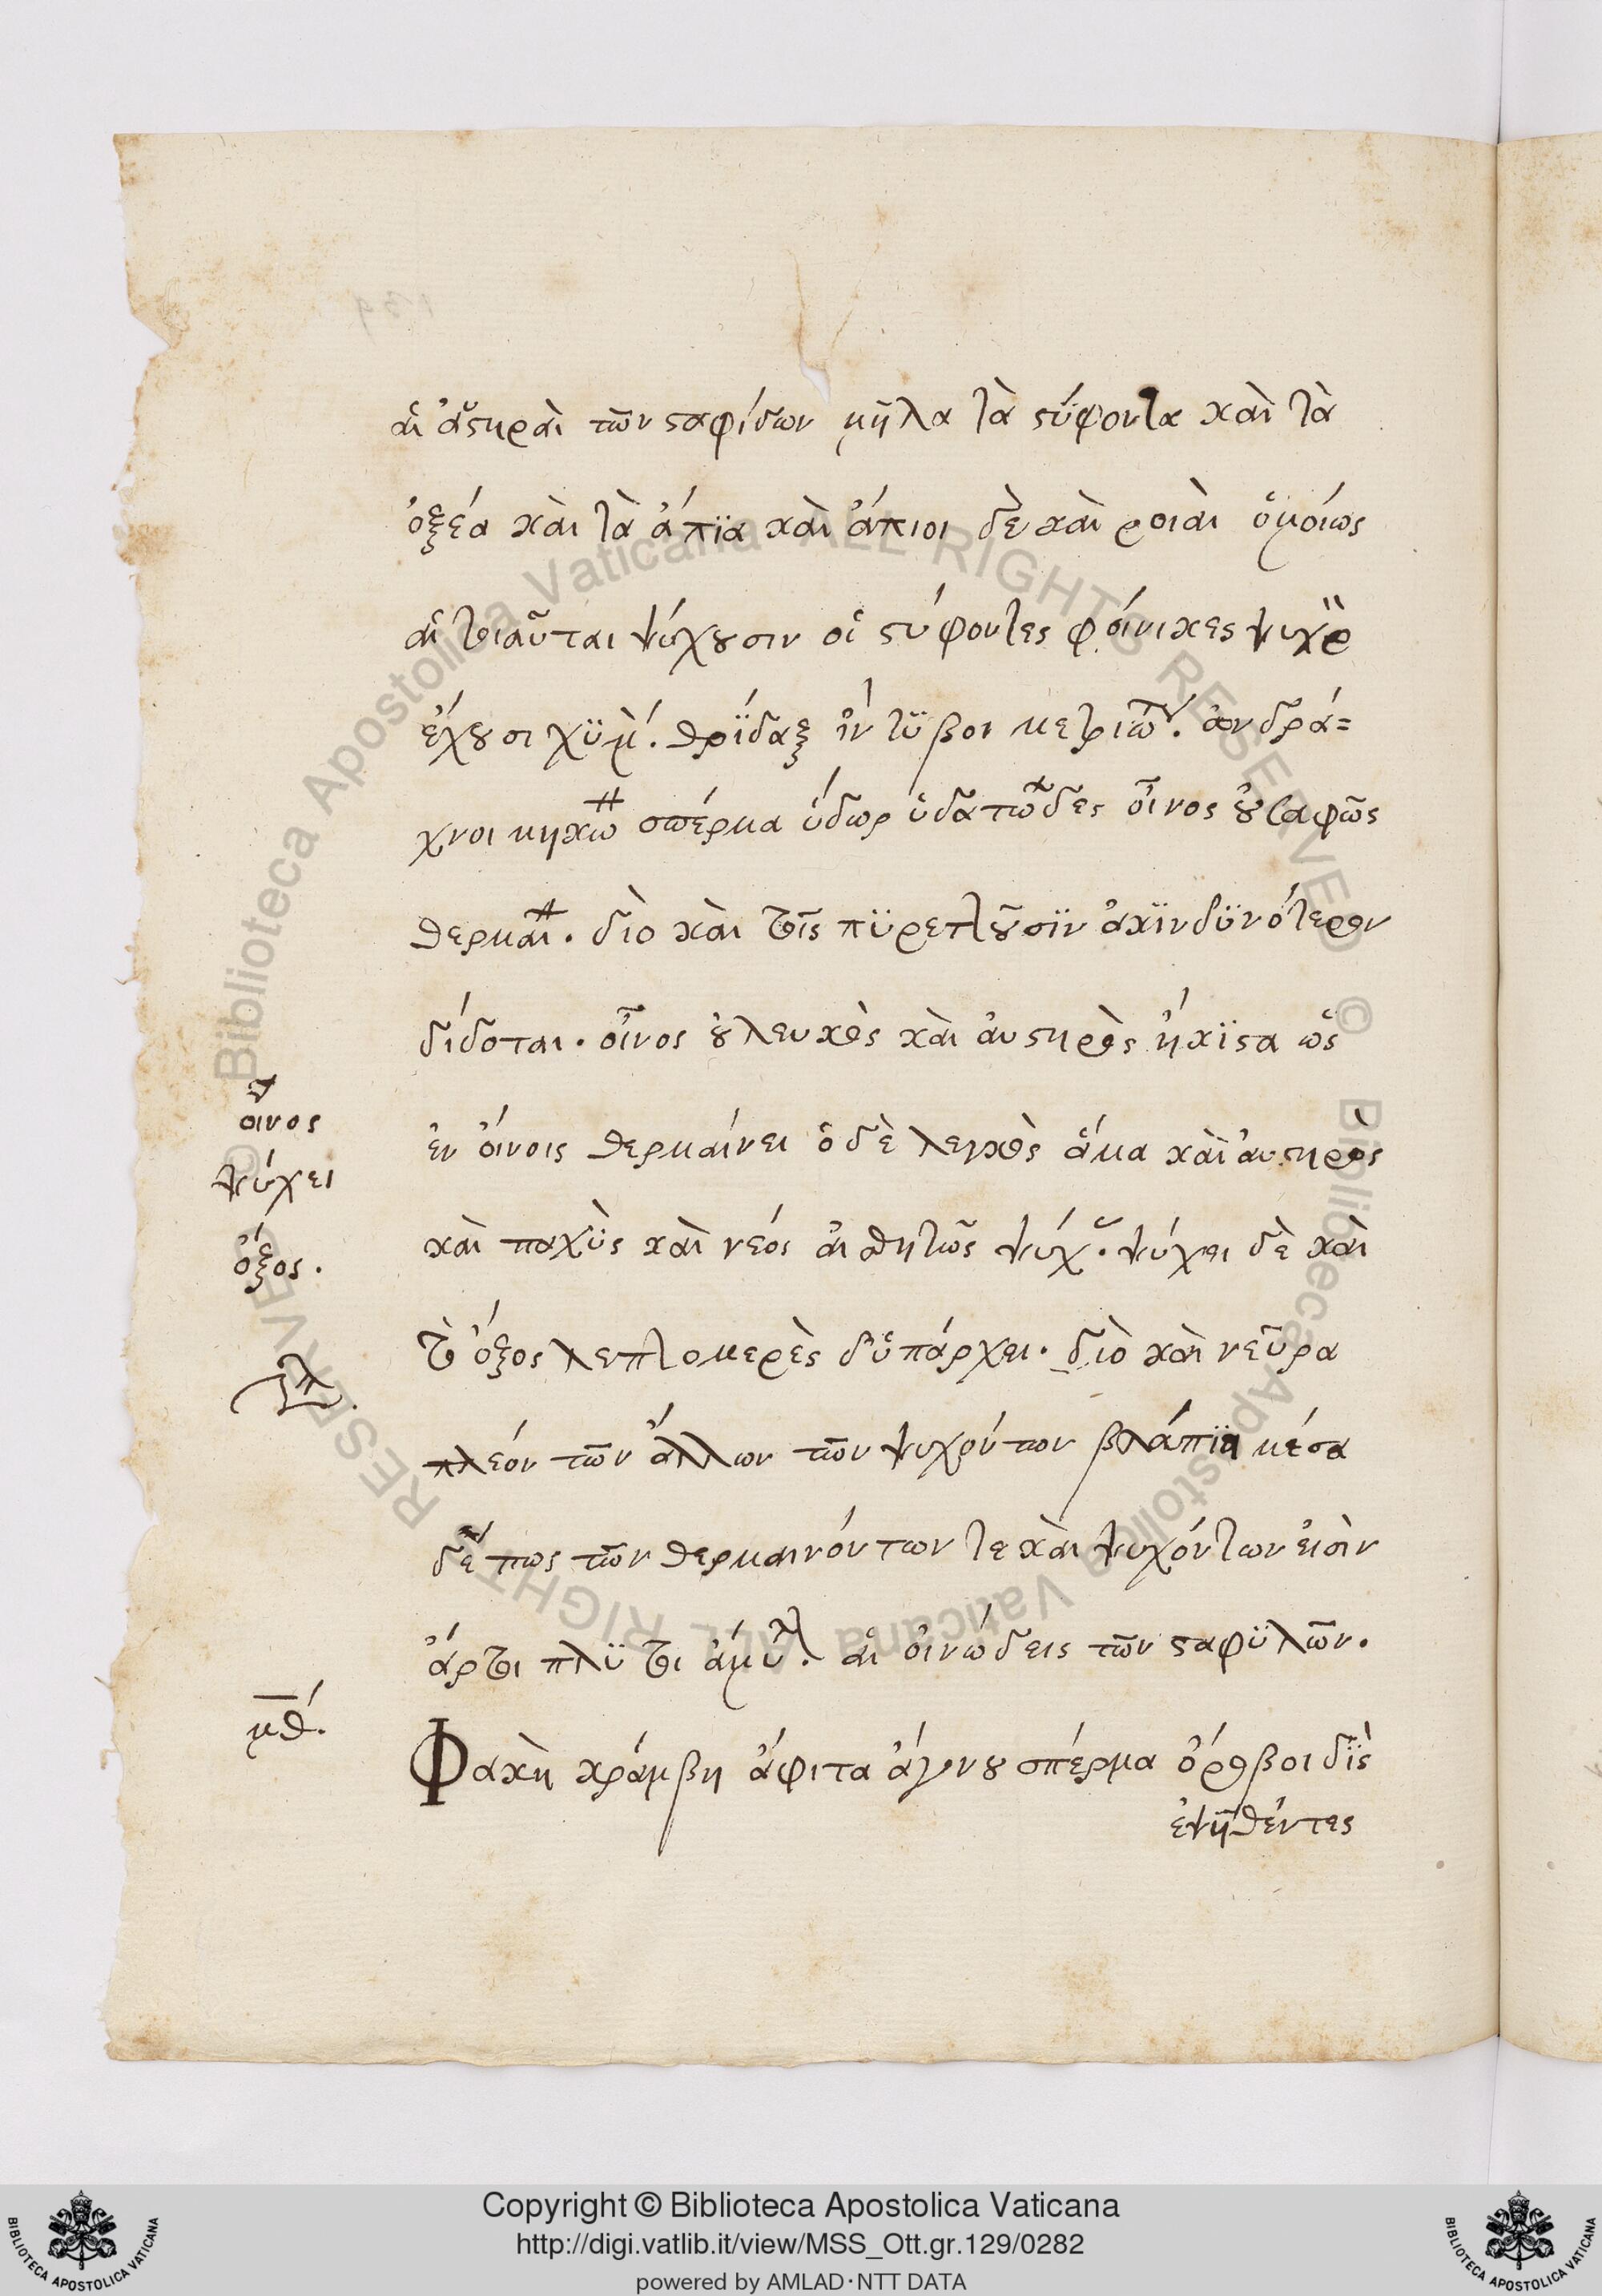 αἱ ἀυστηραὶ τῶν σταφίδων μῆλα τὰ στύφοντα καὶ τὰ
ὀξέα καὶ τὰ ἄπϊα καὶ ἄπιοι δὲ καὶ ροιαὶ ὁμοίως
αἱ τοιαῦται ψύχουσιν οἱ στύφοντες φοίνικες ψυχρὸ
ἔχουσι χϋμ. θρίδαξ ἴντϋβοι μετρίω. ἀνδρά=
χνοι μηκω σπέρμα ὕδωρ ὑδατῶδες οἶνος οὐ σαφῶς
θερμαι. διὸ καὶ τοῖς πϋρεττουσϊν ἀκϊνδϋνότερον
δίδοται. οἶνος ὁ λευκὸς καὶ ἀυστηρὸς ἥκϊστα ὡς
ἐν οἴνοις θερμαίνει ὁ δὲ λευκὸς ἅμα καὶ ἀυστηρὸς
καὶ παχὺς καὶ νέος αἰσθητῶς ψύχ. ψύχει δὲ καὶ
τὸ ὄξος λεπτομερὲς δ' ὑπάρχει. διὸ καὶ νεῦρα
πλέον τῶν ἄλλων τῶν ψυχόντων βλάπτει μέσα
δέ πως τῶν θερμαινόντων τε καὶ ψυχόντων εἰσὶν
ἄρτοι πλϋτοὶ ἄμυλ. αἱ οἰνώδεις τῶν σταφϋλῶν.
Φακὴ κράμβη ἄφιτα ἄγνου σπέρμα ὄροβοι δὶς
ἑψηθέντες
οἶνος
ψύχει
ὄξος.
μθ.
Copyright © Biblioteca Apostolica Vaticana
http://digi.vatlib.it/view/MSS_Ott.gr.129/0282
powered by AMLAD·NTT DATA
BIBLIOTECA APOSTOLICA VATICANA
BIBLIOTECA APOSTOLICA VATICANA
© Biblioteca Apostolica Vaticana ALL RIGHTS RESERVED
© Biblioteca Apostolica Vaticana ALL RIGHTS RESERVED